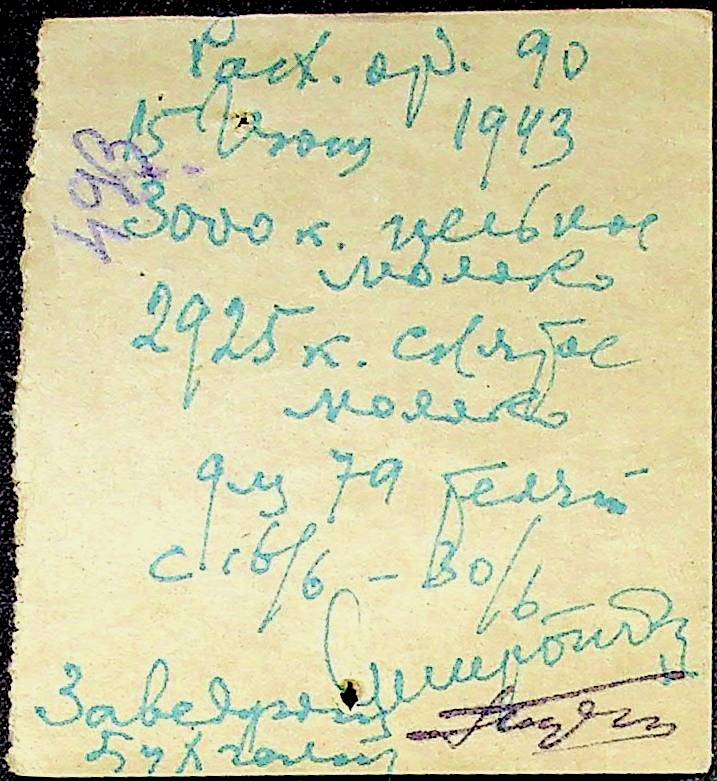 Расх. ор. 90
15 Июня 1943
493
3000 к. цельное
молоко
2925 к. снятое
молоко
для 79 телят
с 16/6 - 30/6
Заведующ
Бухгалт